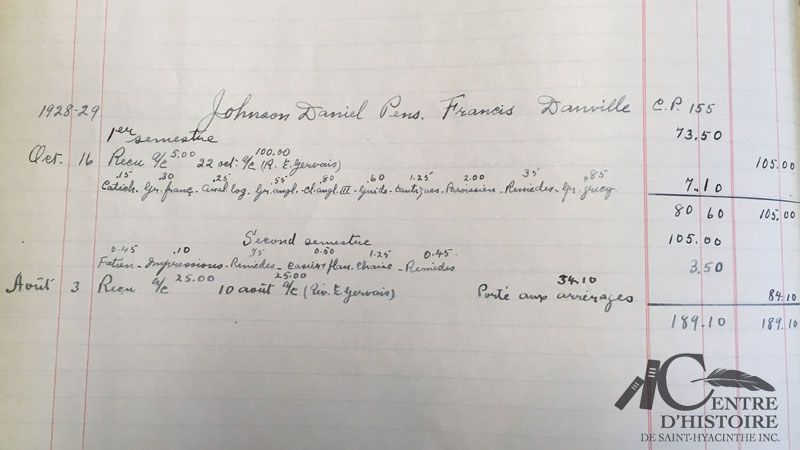 1928-29 Johnson Daniel Pens. Francis Danville C.P. 155
1er semestre 73.50
5.00 100.00
Oct. 16 Recu a/c 22 oct. a/c (R. E. Gervais) 105.00
.15 .30 .25 .55 .80 .60 1.25 2.00 35 .85
Catéch. Gr. franç. Anal log. Gr. angl. Ch. angl. III - Guide - Cantiques - Paroissien - Remèdes - Gr. grecq. 7.10
80 60 105.00
Second semestre 105.00
0.45 .10 75 0.50 1.25 0.45
Impressions - Remèdes - Chaise - Remèdes 3.50
25.00 25.00 34.10
Août 3 Recu a/c 10 août a/c (Rév. E. Gervais) Porté aux arrérages 84.10
189.10 189.10
CENTRE
D'HISTOIRE
DE SAINT-HYACINTHE INC.